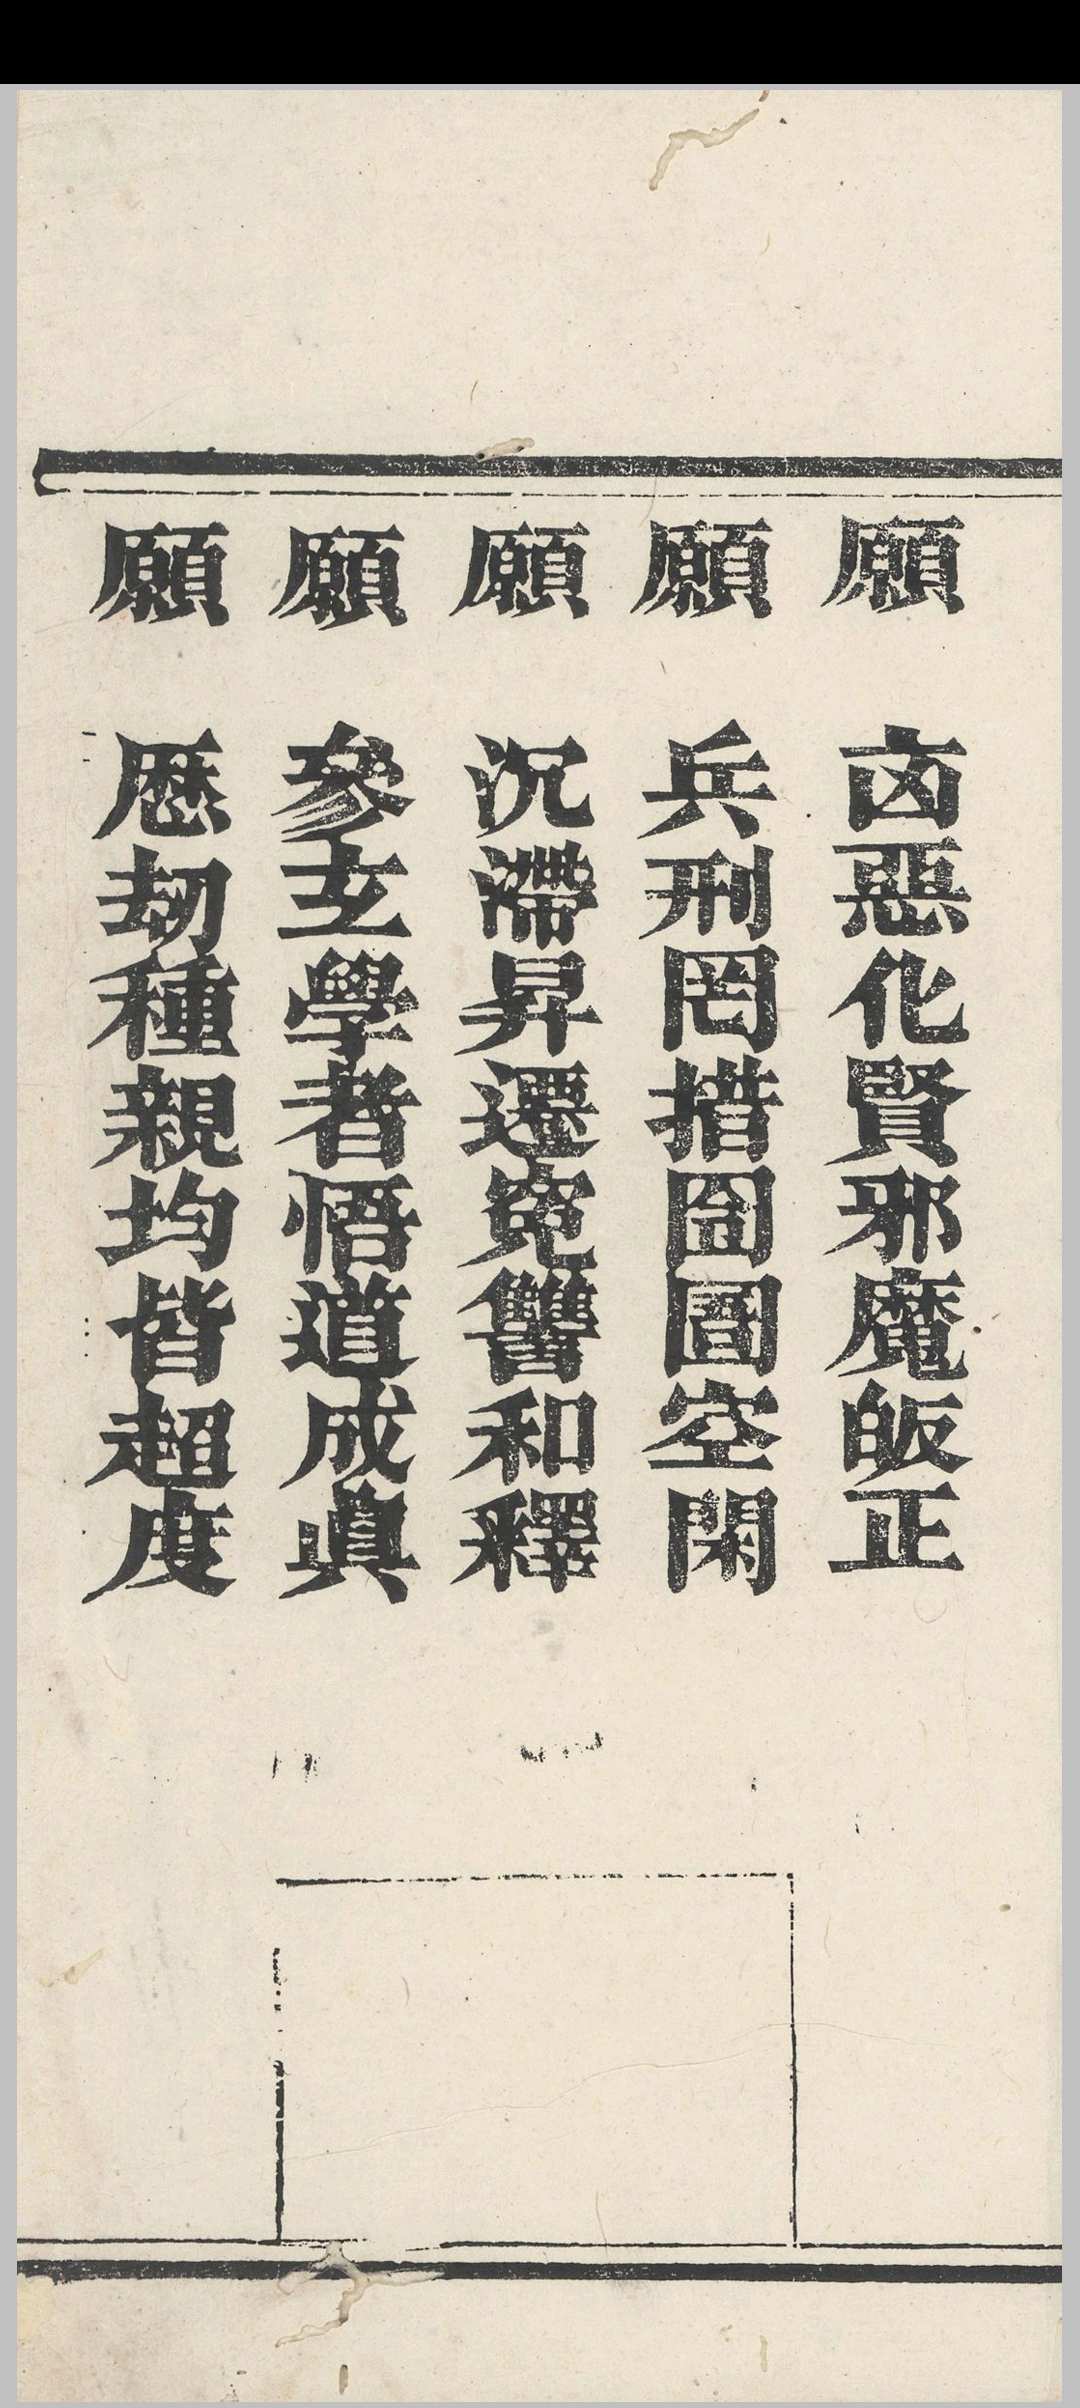 願 㐫惡化賢邪魔皈正
願 兵刑罔措囹圄空閑
願 沉滯昇遷寃讐和釋
願 參玄學者悟道成眞
願 歴刼種親均皆超度